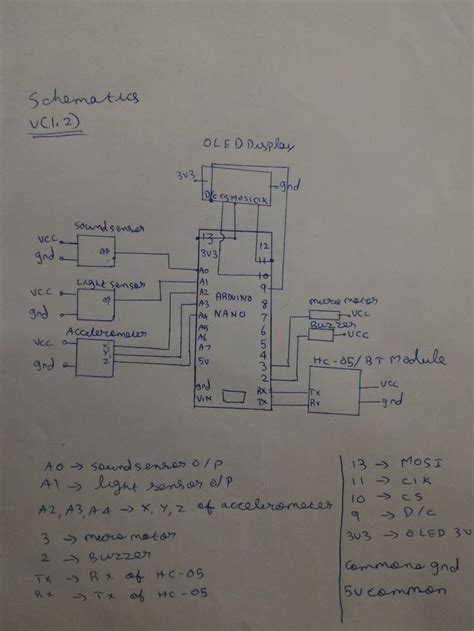 Schematics
V(1.2)
OLED Display
3V3
gnd
D/C CS MOSI CLK
Sound sensor
VCC
gnd
OP
Light sensor
VCC
gnd
OP
Accelerometer
VCC
gnd
X
Y
Z
13
3V3
A0
A1
A2
A3
A4
A5
A6
A7
5V
gnd
VIN
ARDUINO
NANO
12
11
10
9
8
7
6
5
4
3
2
RX
TX
micromotor
VCC
Buzzer
VCC
HC-05/BT Module
Tx
Rx
VCC
gnd
A0 → sound sensor O/P
A1 → light sensor O/P
A2, A3, A4 → X, Y, Z of accelerometer
3 → micromotor
2 → Buzzer
Tx → Rx of HC-05
Rx → Tx of HC-05
13 → MOSI
11 → CLK
10 → CS
9 → D/C
3V3 → OLED 3V
Common gnd
5V common